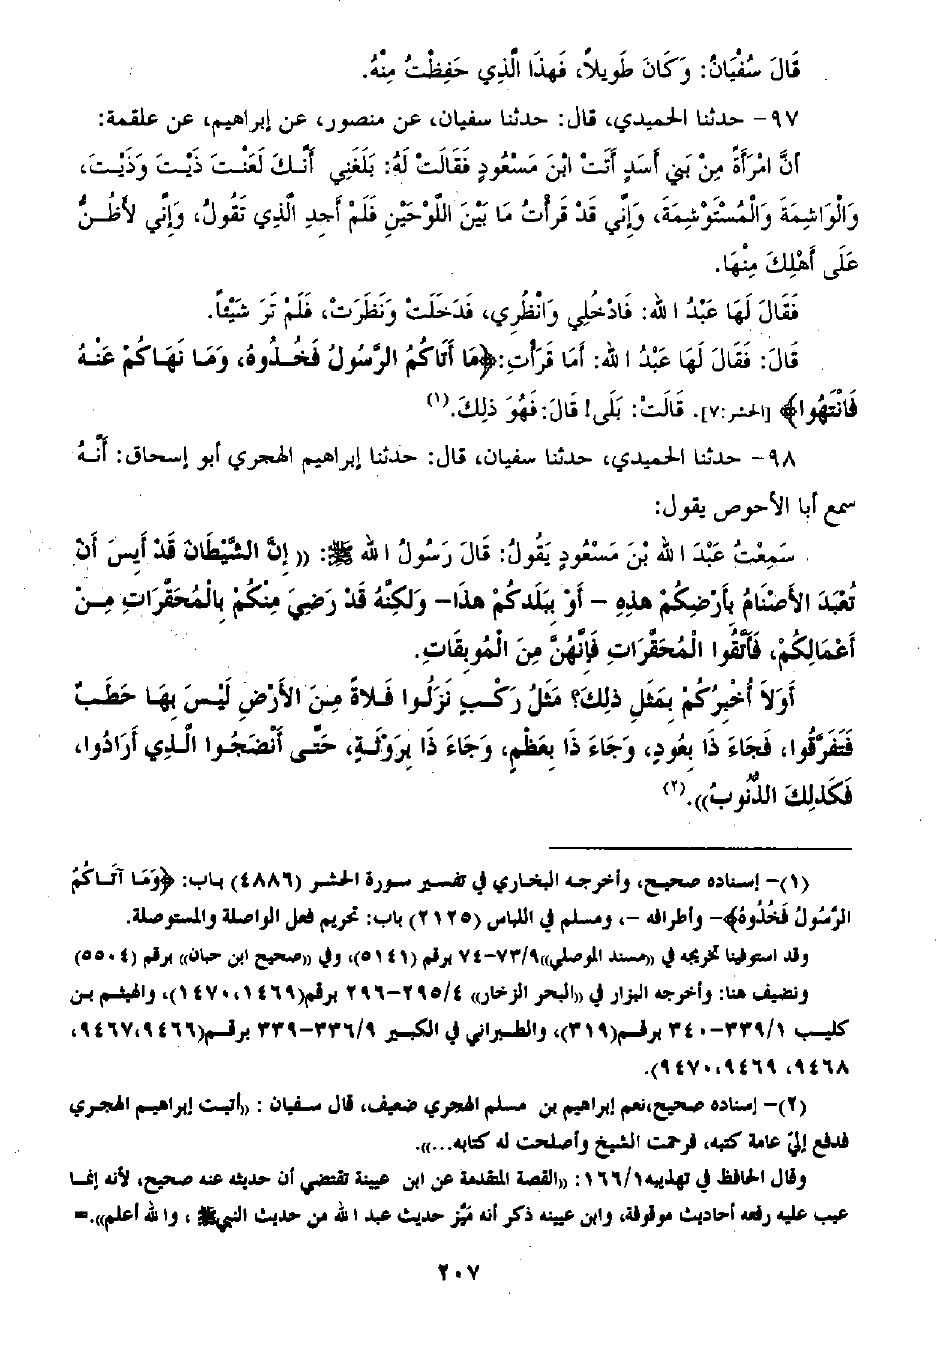 قَالَ سُفْيَانُ: وَكَانَ طَوِيلاً، فَهذَا الَّذِي حَفِظْتُ مِنْهُ.
٩٧- حدثنا الحميدي، قال: حدثنا سفيان، عن منصور، عن إبراهيم، عن علقمة:
أنَّ امْرَأَةً مِنْ بَنِي أَسَدٍ أَتَتْ ابْنَ مَسْعُودٍ فَقَالَتْ لَهُ: بَلَغَنِي أَنَّكَ لَعَنْتَ ذَيْتَ وَذَيْتَ،
وَالْوَاشِمَةَ وَالْمُسْتَوْشِمَةَ، وَإِنِّي قَدْ قَرَأْتُ مَا بَيْنَ اللَّوْحَيْنِ فَلَمْ أَجِدِ الَّذِي تَقُولُ، وَإِنِّي لأَظُنُّ
عَلَى أَهْلِكَ مِنْهَا.
فَقَالَ لَهَا عَبْدُ الله: فَادْخُلِي وَانْظُرِي، فَدَخَلَتْ وَنَظَرَتْ، فَلَمْ تَرَ شَيْئاً.
قَالَ: فَقَالَ لَهَا عَبْدُ الله: أَمَا قَرَأْتِ: ﴿مَا أَتَاكُمُ الرَّسُولُ فَخُذُوهُ، وَمَا نَهَاكُمْ عَنْهُ
فَانْتَهُوا﴾ [الحشر:٧]. قَالَتْ: بَلَى! قَالَ: فَهُوَ ذلِكَ.(١)
٩٨- حدثنا الحميدي، حدثنا سفيان، قال: حدثنا إبراهيم الهجري أبو إسحاق: أَنَّهُ
سمع أبا الأحوص يقول:
سَمِعْتُ عَبْدَ الله بْنَ مَسْعُودٍ يَقُولُ: قَالَ رَسُولُ الله ﷺ: ((إِنَّ الشَّيْطَانَ قَدْ أَيِسَ أَنْ
تُعْبَدَ الأَصْنَامُ بِأَرْضِكُمْ هذِهِ - أَوْ بِبَلَدِكُمْ هذَا- وَلكِنَّهُ قَدْ رَضِيَ مِنْكُمْ بِالْمُحَقَّرَاتِ مِنْ
أَعْمَالِكُمْ، فَاتَّقُوا الْمُحَقَّرَاتِ فَإِنَّهُنَّ مِنَ الْمُوبِقَاتِ.
أَوَلاَ أُخْبِرُكُمْ بِمَثَلِ ذلِكَ؟ مَثَلُ رَكْبٍ نَزَلُوا فَلاةً مِنَ الأَرْضِ لَيْسَ بِهَا حَطَبٌ
فَتَفَرَّقُوا، فَجَاءَ ذَا بِعُودٍ، وَجَاءَ ذَا بِعَظْمٍ، وَجَاءَ ذَا بِرَوْثَةٍ، حَتَّى أَنْضَجُوا الَّذِي أَرَادُوا،
فَكَذلِكَ الذُّنُوبُ)).(٢)
(١)- إسناده صحيح، وأخرجه البخاري في تفسير سورة الحشر (٤٨٨٦) باب: ﴿وَمَا آتَاكُمُ
الرَّسُولُ فَخُذُوهُ﴾- وأطرافه -، ومسلم في اللباس (٢١٢٥) باب: تحريم فعل الواصلة والمستوصلة.
وقد استوفينا تخريجه في ((مسند الموصلي))٧٣/٩-٧٤ برقم (٥١٤١)، وفي ((صحيح ابن حبان)) برقم (٥٥٠٤)
ونضيف هنا: وأخرجه البزار في ((البحر الزخار)) ٢٩٥/٤-٢٩٦ برقم(١٤٦٩، ١٤٧٠)، والهيثم بن
كليب ٣٣٩/١-٣٤٠ برقم(٣١٩)، والطبراني في الكبير ٣٣٦/٩-٣٣٩ برقم(٩٤٦٦، ٩٤٦٧،
٩٤٦٨، ٩٤٦٩، ٩٤٧٠).
(٢)- إسناده صحيح،نعم إبراهيم بن مسلم الهجري ضعيف، قال سفيان : ((أتيت إبراهيم الهجري
فدفع إليّ عامة كتبه، فرحمت الشيخ وأصلحت له كتابه...)).
وقال الحافظ في تهذيبه ١٦٦/١: ((القصة المتقدمة عن ابن عيينة تقتضي أن حديثه عنه صحيح، لأنه إنما
عيب عليه رفعه أحاديث موقوفة، وابن عيينه ذكر أنه ميَّز حديث عبد الله من حديث النبي ﷺ ، والله أعلم)).=
٢٠٧